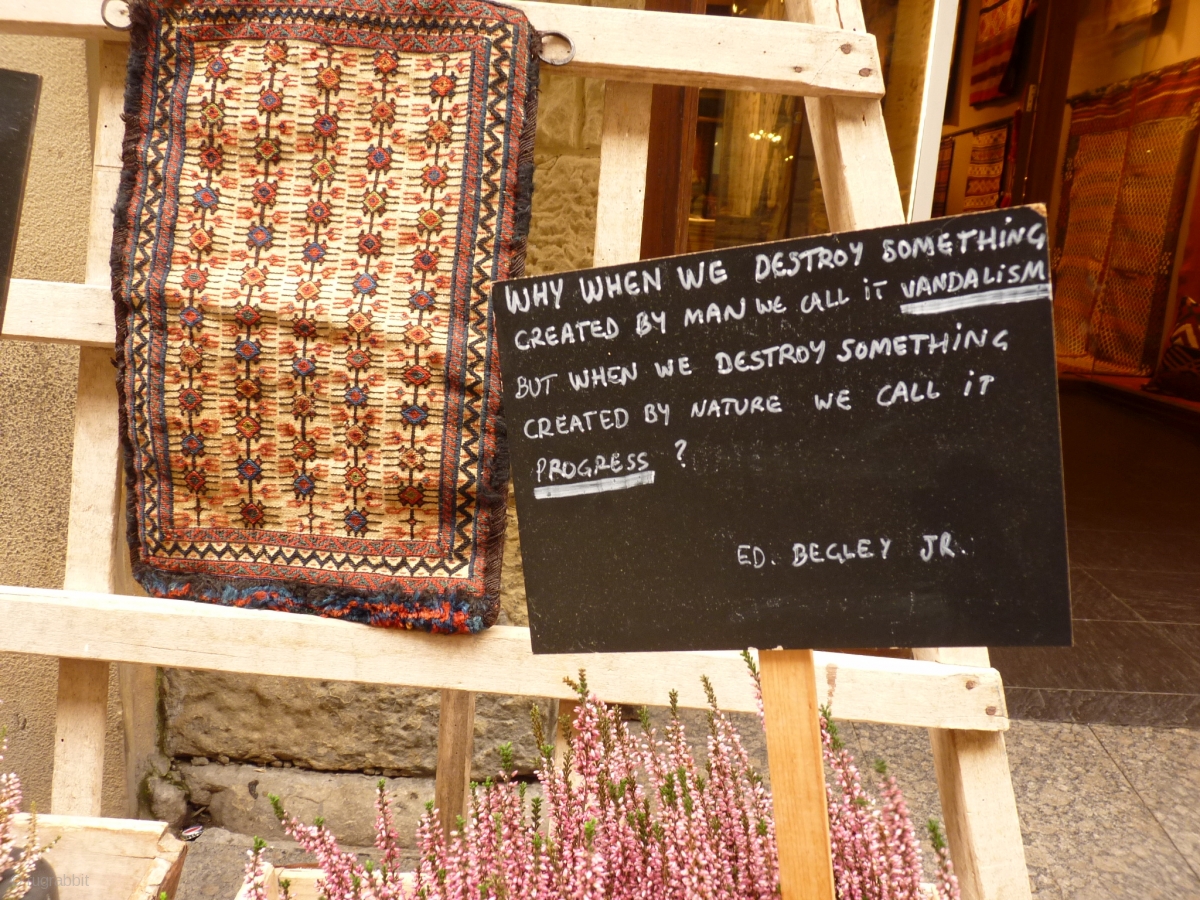 WHY WHEN WE DESTROY SOMETHiNG
CREATED BY MAN WE CALL iT VANDALiSM
BUT WHEN WE DESTROY SOMETHiNG
CREATED BY NATURE WE CALL iT
PROGRESS ?
ED. BEGLEY JR.